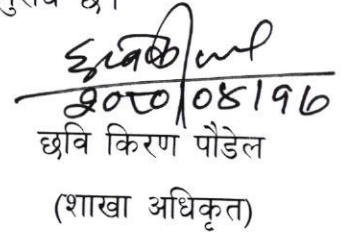 छ।
२०८०/०४/१७
छवि किरण पौडेल
(शाखा अधिकृत)